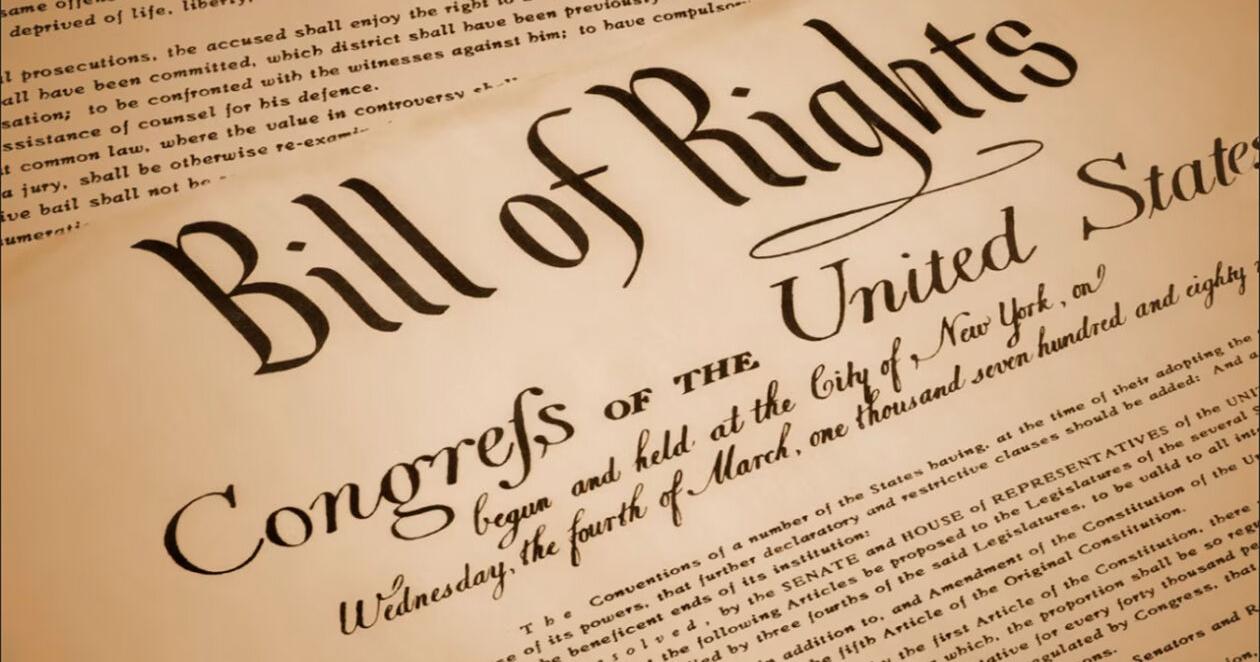 same
deprived of life, liberty,
prosecutions, the accused shall enjoy the right to
all have been committed, which district shall have been previously
sation; to be confronted with the witnesses against him; to have compulsor
ssistance of counsel for his defence.
t common law, where the value in controversy
a jury, shall be otherwise re-exami
ive bail shall not be
Bill of Rights
Congreſs OF THE United States
begun and held at the City of New York, on
Wednesday, the fourth of March, one thousand seven hundred and eighty
The Conventions of a number of the States having, at the time of their adopting the
of its powers, that further declaratory and restrictive clauses should be added: And
beneficent ends of its institution:
solved, by the SENATE and HOUSE of REPRESENTATIVES of the UNI
the following Articles be proposed to the Legislatures of the several
ed by three fourths of the said Legislatures, to be valid to all int
in addition to, and Amendment of the Constitution of the Un
the fifth Article of the Original Constitution.
the first Article of the Constitution, there
which, the proportion shall be so regu
ative for every forty thousand pe
gulated by Congress, that
Senators and R